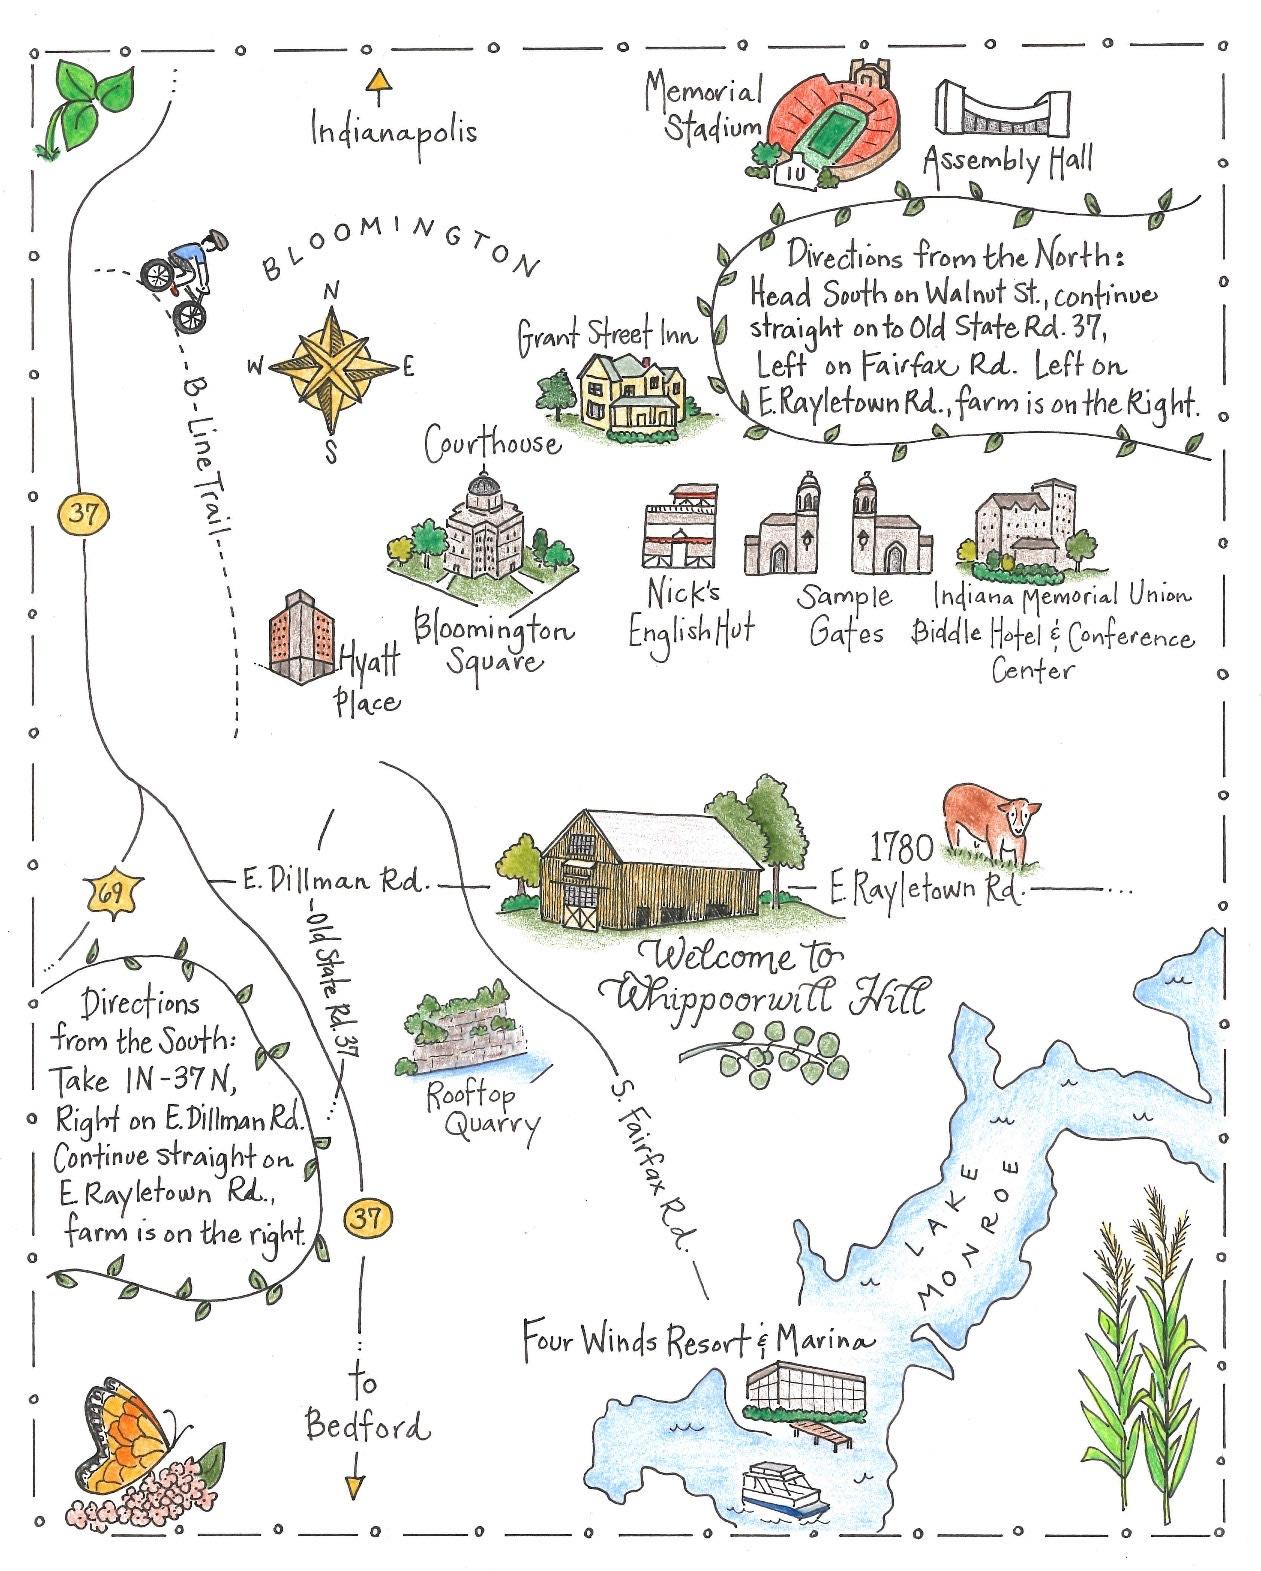 Indianapolis
Memorial
Stadium
IU
Assembly Hall
BLOOMINGTON
N
W
E
S
Directions from the North:
Head South on Walnut St., continue
straight on to Old State Rd. 37,
Left on Fairfax Rd. Left on
E. Rayletown Rd., farm is on the Right.
Grant Street Inn
B-Line Trail
Courthouse
37
Bloomington
Square
Nick's
English Hut
Sample
Gates
Indiana Memorial Union
Biddle Hotel & Conference
Center
Hyatt
Place
69
E. Dillman Rd.
1780
E Rayletown Rd.
Old State Rd. 37
Welcome to
Whippoorwill Hill
Directions
from the South:
Take IN-37 N,
Right on E. Dillman Rd.
Continue straight on
E. Rayletown Rd.,
farm is on the right.
Rooftop
Quarry
S. Fairfax Rd.
LAKE
MONROE
37
Four Winds Resort & Marina
to
Bedford